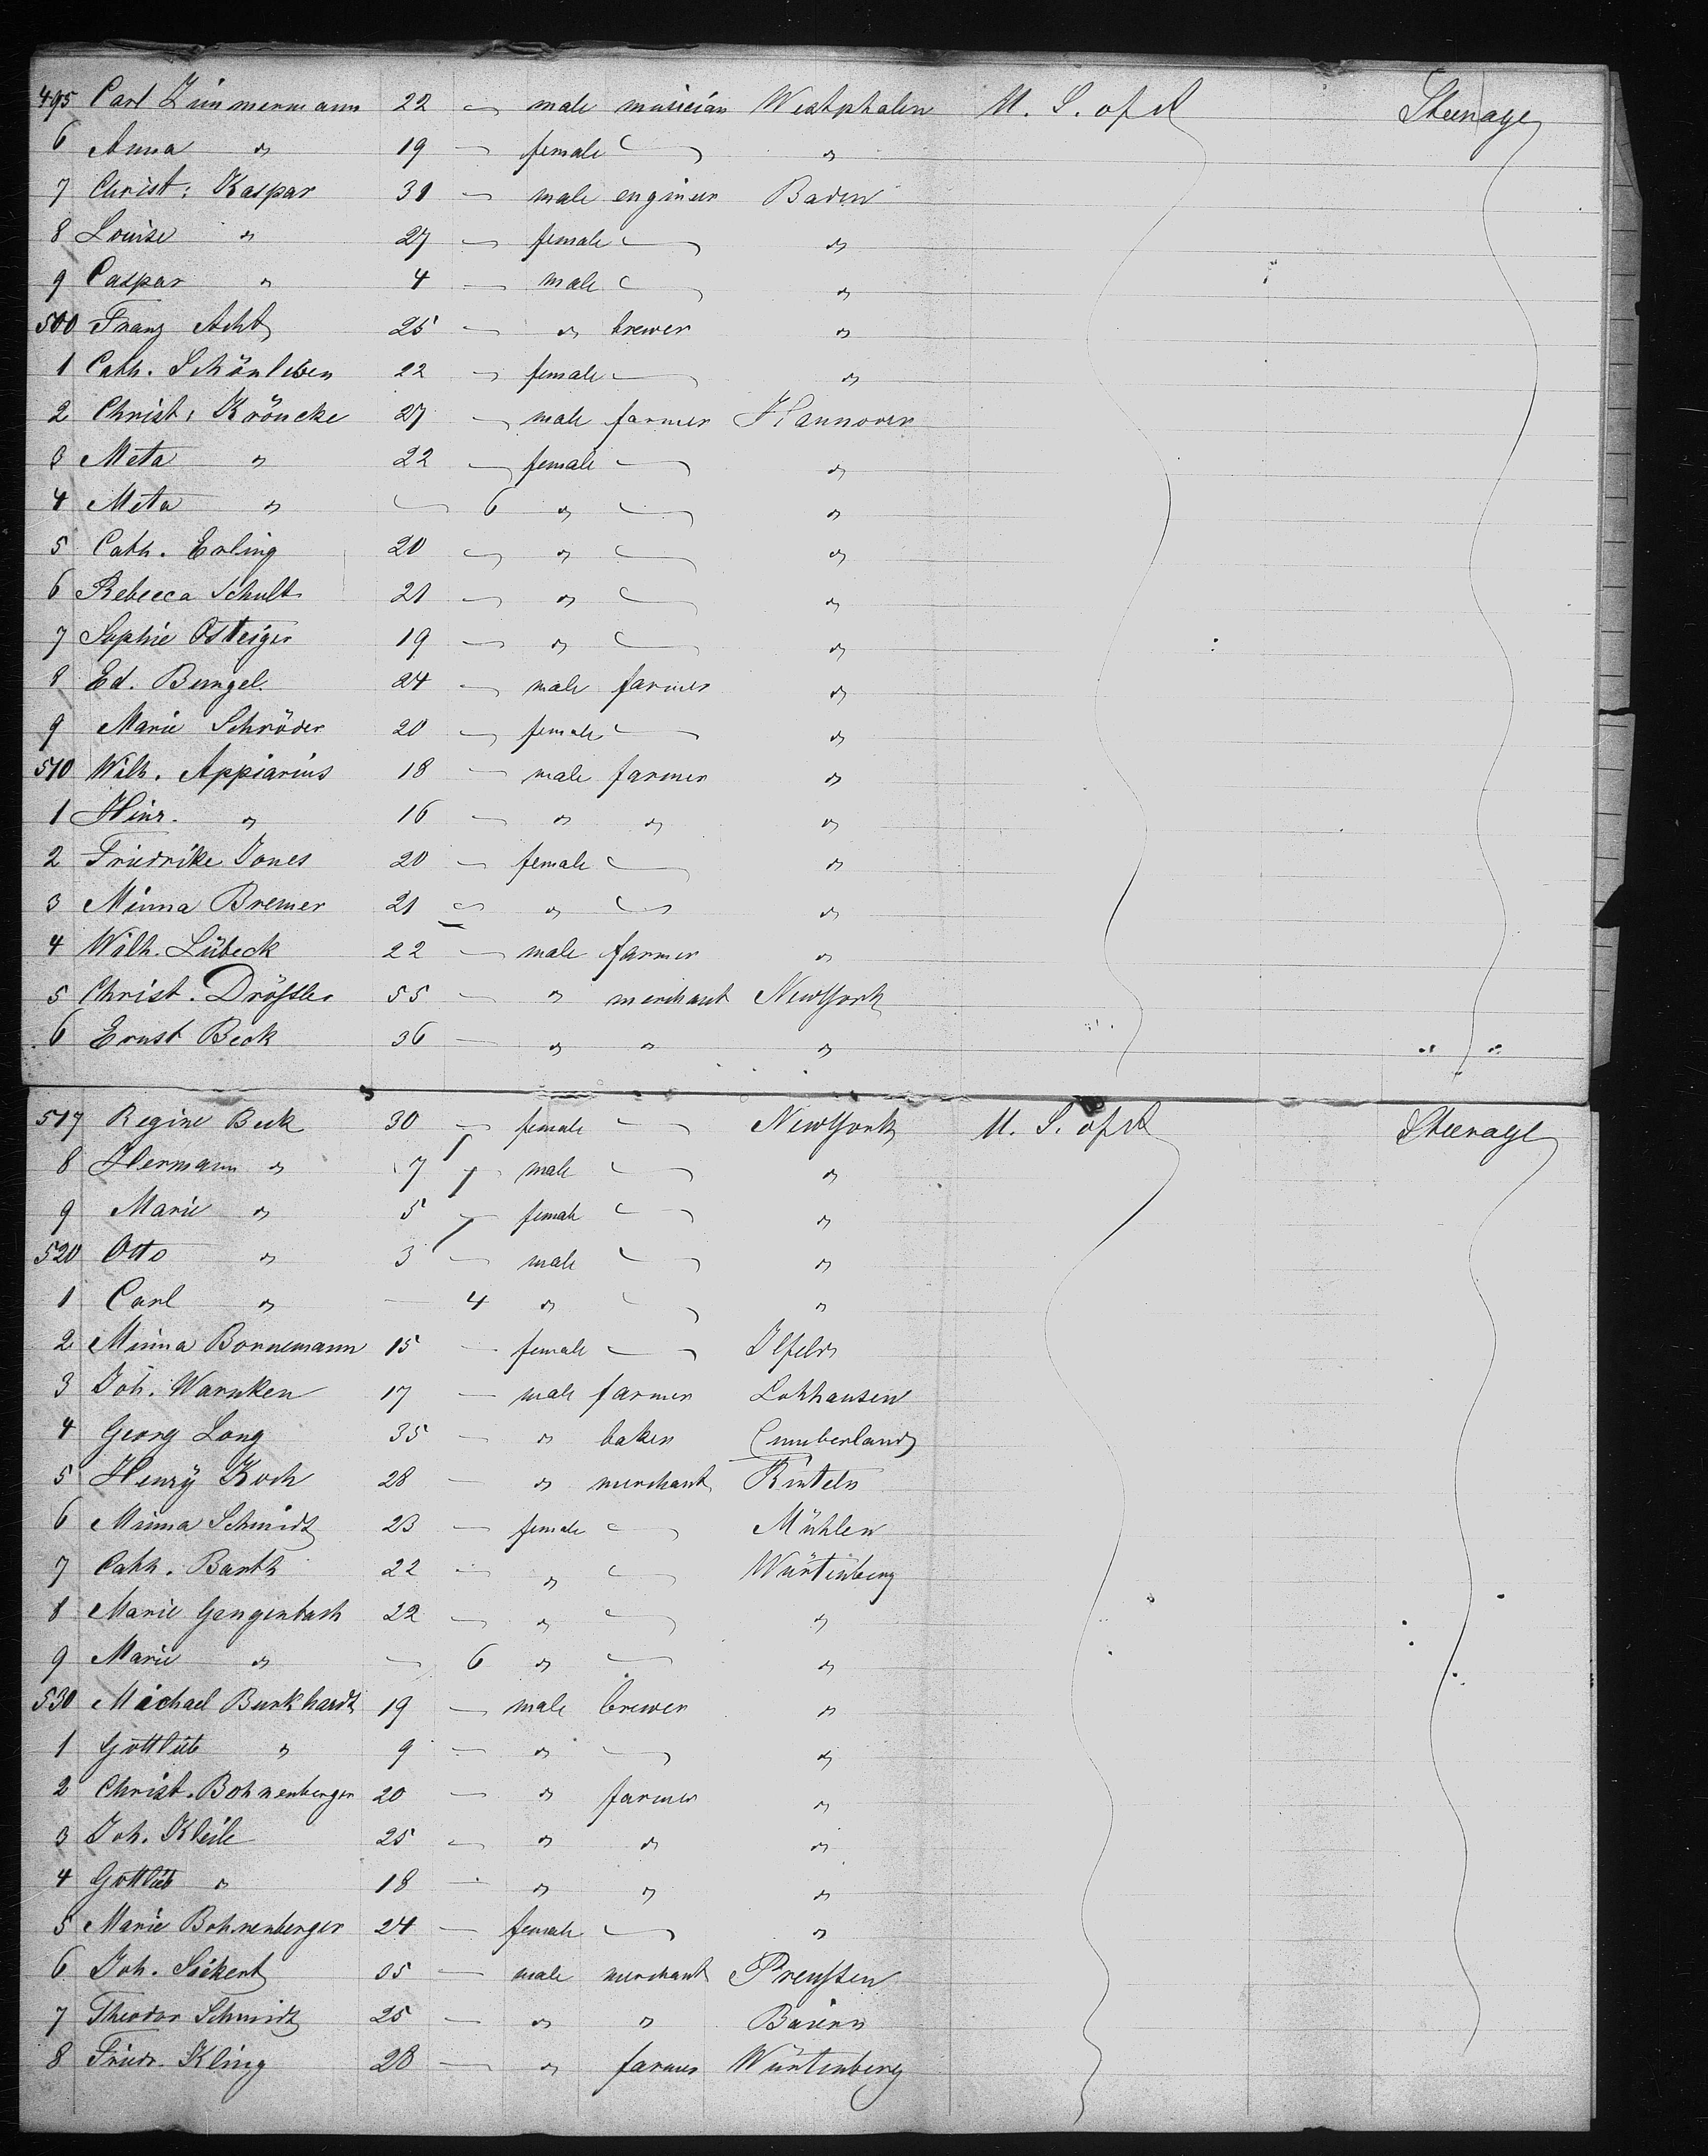 495 Carl Zimmermann 22 — male musician Westphalen U. S. of A Steerage
6 Anna " 19 — female — "
7 Christ: Kaspar 31 — male engineer Baden
8 Louise " 27 — female — "
9 Caspar " 4 — male — "
500 Franz Acht 25 — " brewer "
1 Cath. Schönleben 22 — female — "
2 Christ: Kröncke 27 — male farmer Hannover
3 Meta " 22 — female — "
4 Meta " — 6 " — "
5 Cath. Erling 20 — " — "
6 Rebecca Schult 21 — " — "
7 Sophie Osteiger 19 — " — "
8 Ed. Bungel. 24 — male farmer "
9 Marie Schröder 20 — female — "
510 Wilh. Appiarius 18 — male farmer "
1 Hinr. " 16 — " " "
2 Friedrike Jones 20 — female — "
3 Minna Bremer 21 — " — "
4 Wilh. Lübeck 22 — male farmer "
5 Christ. Dröſsler 55 — " merchant NewYork
6 Ernst Beck 36 — " " "
517 Regine Beck 30 — female — NewYork U. S. of A Steerage
8 Hermann " 7 — male — "
9 Marie " 5 — female — "
520 Otto " 3 — male — "
1 Carl " — 4 " — "
2 Minna Bonnemann 15 — female — Ilfeld
3 Joh. Warnken 17 — male farmer Lohhausen
4 Georg Long 35 — " baker Cumberland
5 Henry Koch 28 — " merchant Rinteln
6 Minna Schmidt 23 — female — Mühlen
7 Cath. Barth 22 — " — Würtenberg
8 Marie Gengenbach 22 — " — "
9 Marie " — 6 " — "
530 Michael Burkhardt 19 — male brewer "
1 Gottlieb " 9 — " — "
2 Christ. Bohnenberger 20 — " farmer "
3 Joh. Kleile 25 — " " "
4 Gottlieb " 18 — " " "
5 Marie Bohnenberger 24 — female — "
6 Joh. Seikert 35 — male merchant Preuſsen
7 Theodor Schmidt 25 — " " Baiern
8 Friedr. Kling 28 — " farmer Würtenberg